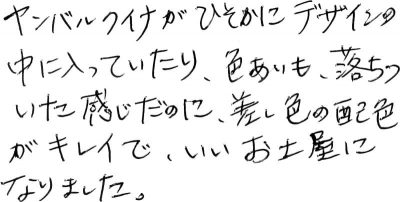 ヤンバルクイナがひそかにデザインの
中に入っていたり、色あいも、落ちつ
いた感じだのに、差し色の配色
がキレイで、いいお土屋に
なりました。